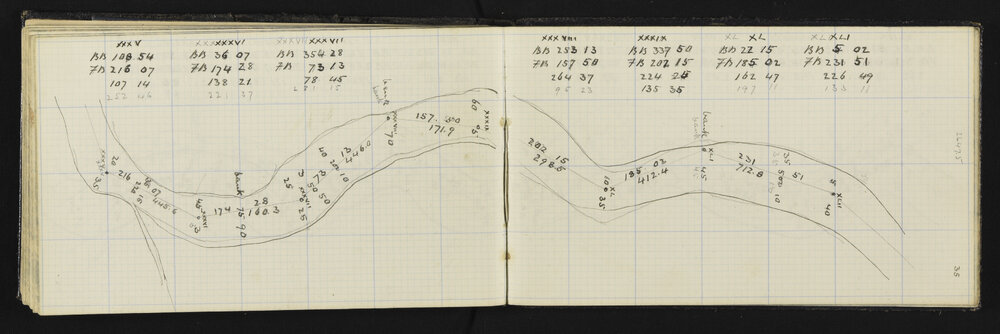 XXXV
BB 108 54
FB 216 07
107 14
252 46
XXXXXVI
BB 36 07
FB 174 28
138 21
221 37
XXXVII
BB 354 28
FB 73 13
78 45
XXXVIII
BB 253 13
FB 157 50
264 37
95 23
XXXIX
BB 337 50
FB 202 15
224 25
135 35
XL XL
BB 22 15
FB 185 02
162 47
197 11
XLXLI
BB 5 02
FB 231 51
226 49
133 11
20
216
35
445.6
XXXVI
174
28
160.3
bank
75
90
25
XXXVII
50
50
25
73
13
40
20
10
bank
70
157. 50
171.9
60
XXXIX
202 15
298.5
10
XL
35
185 02
412.4
bank
XLI
45
231 51
712.8
35
50
10
5
XLII
40
35